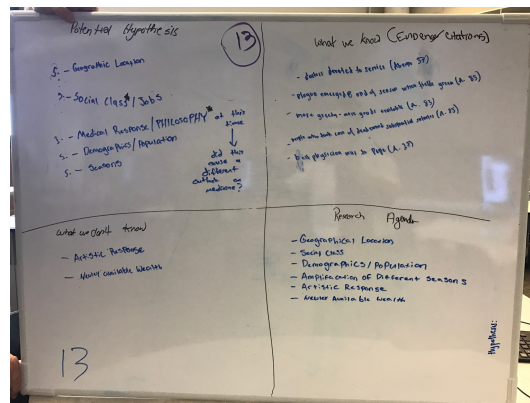 Potential Hypothesis
13
S. - Geographic Location
S. - Social Class*/Jobs
S. - Medical Response/PHILOSOPHY* at this time
S. - Demographics/Population
S. - Seasons
did this
cause a
different
outlook on
medicine?
What we know (Evidence/citations)
- doctors devoted to service
- plague emerged @ end of
- more greedy - more goods available
- people who took care of
- best physician was
What we don't know
- Artistic Response
- Newly available Wealth
13
Research Agenda
- Geographical Location
- Social Class
- Demographics/Population
- Amplification of Different Seasons
- Artistic Response
- Newer Available Wealth
Hypothesis: